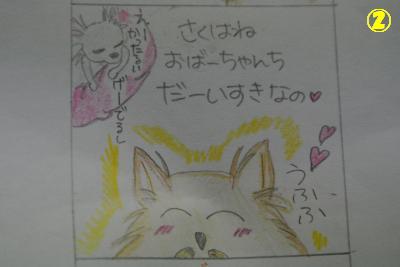 ②
さくはね
おばーちゃんち
だーいすきなの♥
えー
かったるい
げーでるし
うふふ